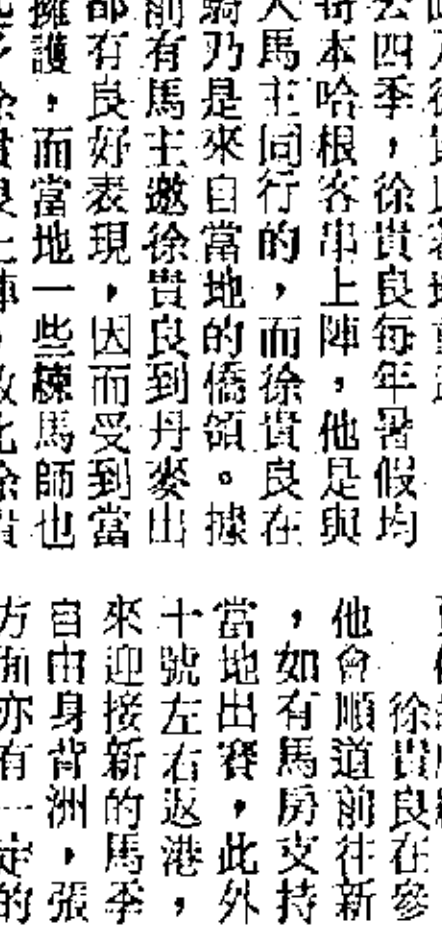 去四季，徐貴良每年暑假均
哥本哈根客串上陣，他是與
馬主同行的，而徐貴良在
騎乃是來自當地的僑領。據
前有馬主邀徐貴良到丹麥出
都有良好表現，因而受到當
擁護，而當地一些練馬師也
徐貴良在參
他會順道前往新
，如有馬房支持
當地出賽，此外
十號左右返港，
來迎接新的馬季
自由身背洲，張
方面亦有一定的